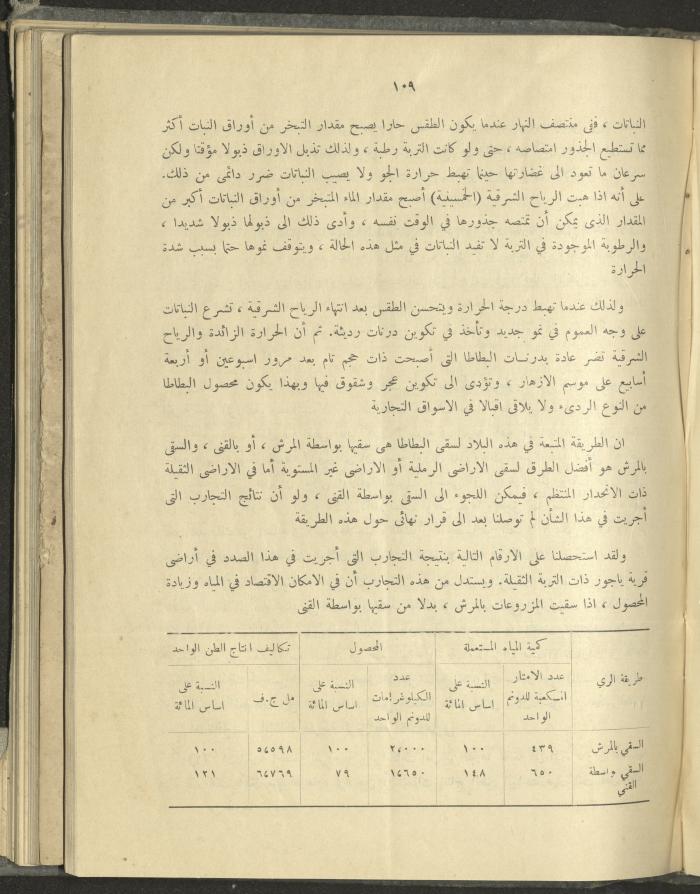 ١٠٩
النباتات ، ففى منتصف النهار عندما يكون الطقس حارا يصبح مقدار التبخر من أوراق النبات أكثر
مما تستطيع الجذور امتصاصه ، حتى ولو كانت التربة رطبة ، ولذلك تذبل الاوراق ذبولا مؤقتا ولكن
سرعان ما تعود الى غضارتها حينما تهبط حرارة الجو ولا يصيب النباتات ضرر دائمى من ذلك.
على أنه اذا هبت الرياح الشرقية (الخمسينية) أصبح مقدار الماء المتبخر من أوراق النباتات أكبر من
المقدار الذى يمكن أن تمتصه جذورها في الوقت نفسه ، وأدى ذلك الى ذبولها ذبولا شديدا ،
والرطوبة الموجودة في التربة لا تفيد النباتات في مثل هذه الحالة ، ويتوقف نموها حتما بسبب شدة
الحرارة
ولذلك عندما تهبط درجة الحرارة ويتحسن الطقس بعد انتهاء الرياح الشرقية ، تشرع النباتات
على وجه العموم في نمو جديد وتأخذ في تكوين درنات رديئة. ثم أن الحرارة الزائدة والرياح
الشرقية تضر عادة بدرنات البطاطا التى أصبحت ذات حجم تام بعد مرور اسبوعين أو أربعة
أسابيع على موسم الازهار ، وتؤدى الى تكوين عجر وشقوق فيها وبهذا يكون محصول البطاطا
من النوع الردىء ولا يلاقى اقبالا في الاسواق التجارية
ان الطريقة المتبعة في هذه البلاد لسقى البطاطا هى سقيها بواسطة المرش ، أو بالقنى ، والسقى
بالمرش هو أفضل الطرق لسقى الاراضى الرملية أو الاراضى غير المستوية أما في الاراضى الثقيلة
ذات الانحدار المنتظم ، فيمكن اللجوء الى السقى بواسطة القنى ، ولو أن نتائج التجارب التى
أجريت في هذا الشأن لم توصلنا بعد الى قرار نهائى حول هذه الطريقة
ولقد استحصلنا على الارقام التالية بنتيجة التجارب التى أجريت في هذا الصدد في أراضى
قرية ياجور ذات التربة الثقيلة. ويستدل من هذه التجارب أن في الامكان الاقتصاد في المياه وزيادة
المحصول ، اذا سقيت المزروعات بالمرش ، بدلا من سقيها بواسطة القنى
طريقة الري كمية المياه المستعملة المحصول تكاليف انتاج الطن الواحد
عدد الامتار النسبة على عدد النسبة على مل ج.ف النسبة على
المكعبة للدونم اساس المائة الكيلوغرامات اساس المائة اساس المائة
الواحد للدونم الواحد
السقي بالمرش ٤٣٩ ١٠٠ ٢،٠٠٠ ١٠٠ ٥،٥٩٨ ١٠٠
السقي بواسطة ٦٥٠ ١٤٨ ١،٦٥٠ ٧٩ ٦،٧٦٩ ١٢١
القني